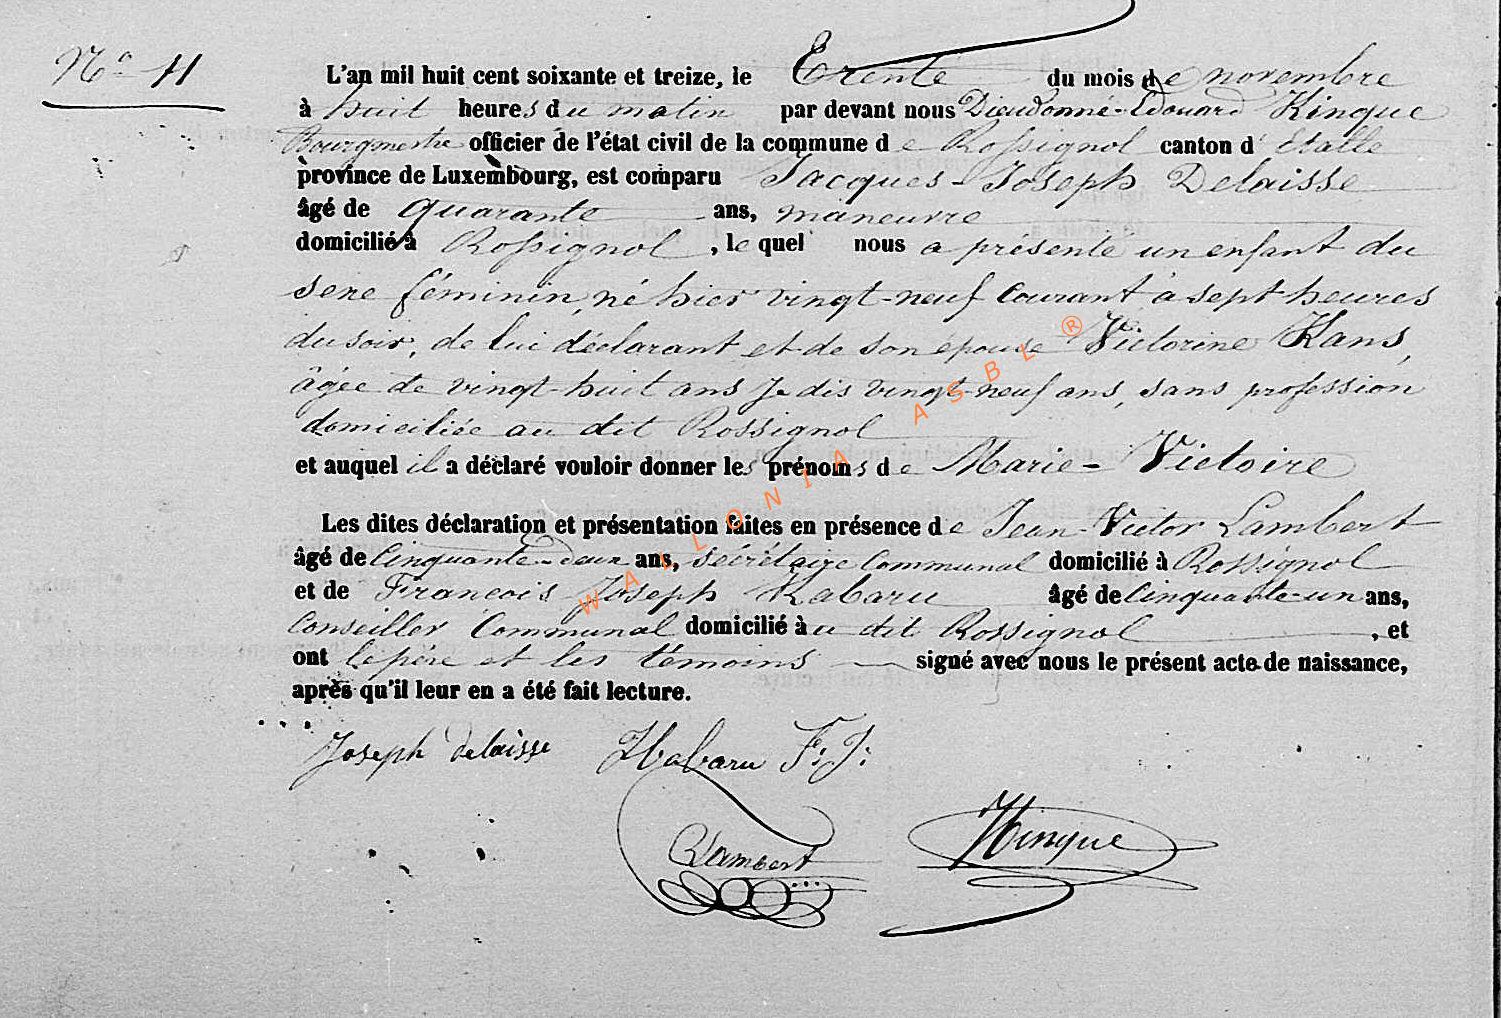 No 41
L'an mil huit cent soixante et treize, le Trente du mois de novembre
à huit heures du matin par devant nous Dieudonné-Edouard Hinque
Bourgmestre officier de l'état civil de la commune de Rossignol canton d'Etalle
province de Luxembourg, est comparu Jacques-Joseph Delaisse
âgé de quarante ans, maneuvre
domicilié à Rossignol, le quel nous a présenté un enfant du
sexe féminin, né hier vingt-neuf courant à sept heures
du soir, de lui déclarant et de son épouse Victorine Hans,
âgée de vingt-huit ans je dis vingt-neuf ans, sans profession
domiciliée au dit Rossignol
et auquel il a déclaré vouloir donner les prénoms de Marie-Victoire
Les dites déclaration et présentation faites en présence de Jean-Victor Lambert
âgé de Cinquante-deux ans, secrétaire Communal domicilié à Rossignol
et de Francois Joseph Habaru âgé de Cinquante-un ans,
Conseiller Communal domicilié àu dit Rossignol, et
ont le père et les témoins signé avec nous le présent acte de naissance,
après qu'il leur en a été fait lecture.
Joseph delaisse Habaru F: J:
Lambert Hinque
WALLONIA ASBL ®